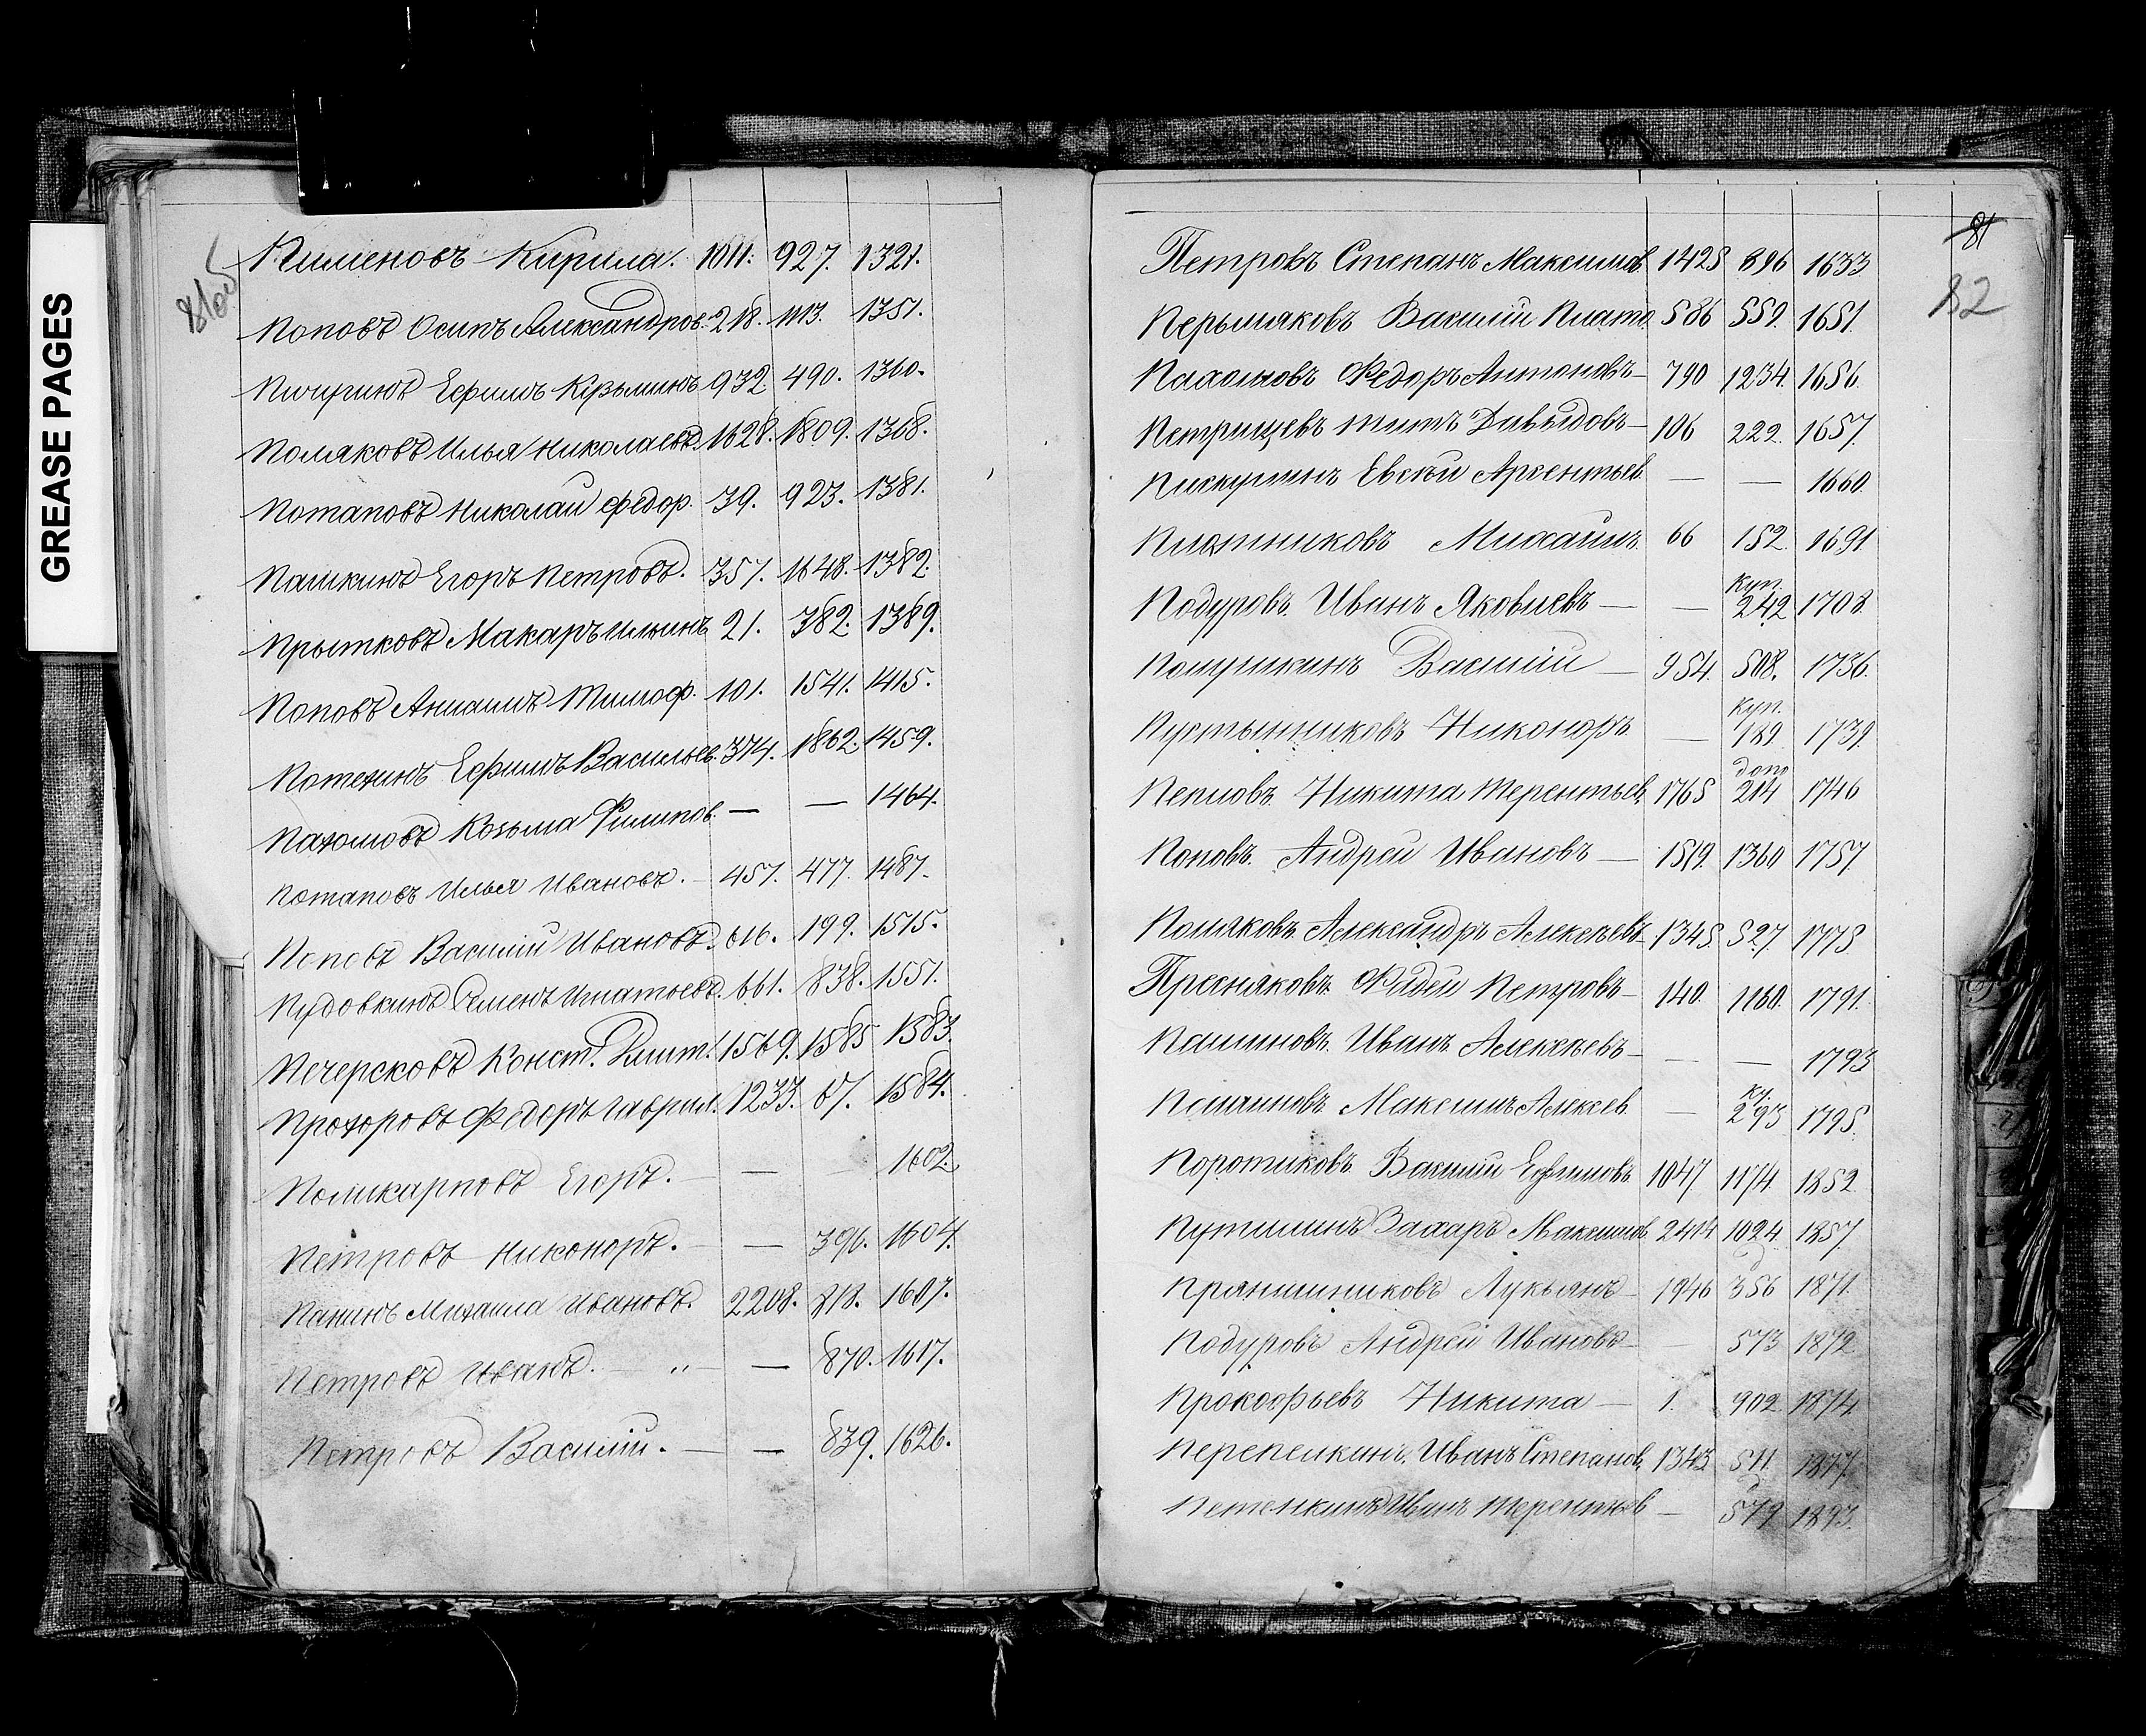 GREASE PAGES
81об
Пименовъ Кирила. 1011. 927. 1321.
Поповъ Осипъ Александров. 218. 1113. 1351.
Пичугинъ Ефимъ Кузьминъ 932. 490. 1360.
Поляковъ Илья Николаевъ 1628. 1809. 1368.
Потаповъ Николай Федор. 39. 923. 1381.
Пашкинъ Егоръ Петровъ. 357. 1648. 1382.
Прытковъ Макаръ Ильинъ 21. 382. 1389.
Поповъ Тимоф. 101. 1541. 1415.
Потехинъ Ефимъ Васильев. 374. 1862. 1459.
Пахомовъ Козьма Филипов. — — 1464.
Потаповъ Илья Ивановъ. — 457. 477. 1487.
Поповъ Василий Ивановъ. 616. 199. 1515.
Пудовкинъ Семенъ Игнатьевъ. 661. 838. 1551.
Печерсковъ Конст. Дмит. 1569. 1585 1583.
Прохоровъ Федоръ Гаврил. 1233. 67. 1584.
Поликарповъ Егоръ. — — 1602.
Петровъ Никоноръ. — — 396. 1604.
Панинъ Михаила Ивановъ. 2208. 818. 1607.
Петровъ Иванъ. — „ — — 870. 1617.
Петровъ Василий. — — 839. 1626.
81
82
Петровъ Степанъ Максимов 1425 896 1633
Перьмяковъ Василий Плато 586 559. 1651.
Пахомовъ Федоръ Антоновъ — 790 1234. 1656.
Петрищевъ Титъ Давыдовъ — 106 222. 1657.
Пискунинъ Евсѣй Арсентьев. — — 1660.
Плотниковъ Михаилъ 66 152. 1691
Подуровъ. Иванъ Яковлевъ — — Куп. 242 1708
Полушкинъ Василий — 954. 508. 1736.
Пустынниковъ Никоноръ — Куп. 189 1739
Пепловъ. Никита Терентьев. 1765 допо 214 1746
Поповъ. Андрей Ивановъ — 1519. 1360 1757.
Поляковъ. Александръ Алексѣевъ 1345. 527. 1775.
Пресняковъ. Фадей Петровъ — 140. 1160. 1791.
Пашиновъ. Иванъ Алексѣевъ — — — 1793
Максимъ Алексѣев. — Ку. 293 1795.
Поротиковъ. Василий Ефимовъ 1047 1174 1852
Путилинъ Захаръ Максимов. 2414 1024 1857.
Прянишниковъ Лукьянъ — 1946 356 1871.
Подуровъ Андрей Ивановъ — — 573 1872
Прокофьевъ Никита — 1. 902. 1874.
Перепелкинъ. Иванъ Степанов. 1343 511. 1877.
Петелкинъ Иванъ Терентьев — 579 1893.